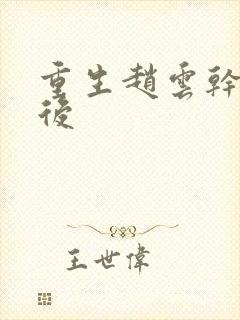 重生趙雲幹
後
王世偉